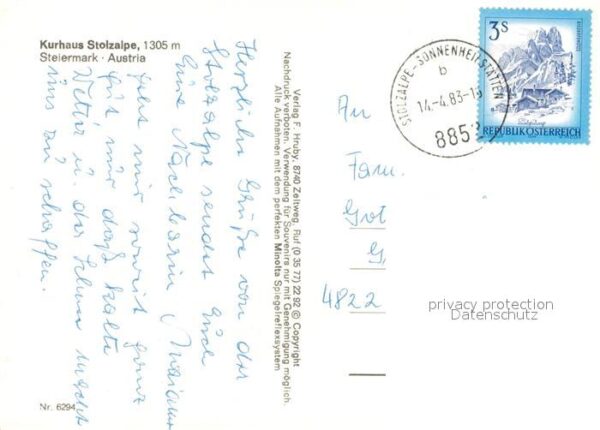 Kurhaus Stolzalpe, 1305 m
Steiermark · Austria
Herzliche Grüße von der
Stolzalpe sendet Euch
Eure Nachbarin
geht mir soweit ganz
gut nur das kalte
Wetter u. der Schnee macht
uns zu schaffen.
Nr. 6294
Verlag F. Hruby, 8740 Zeltweg, Ruf (0 35 77) 22 92 © Copyright
Nachdruck verboten. Verwendung für Souvenirs nur mit Genehmigung möglich.
Alle Aufnahmen mit dem perfekten Minolta Spiegelreflexsystem
STOLZALPE-SONNENHEILSTÄTTEN
b
14.-4.83-1
885
3S
REPUBLIK ÖSTERREICH
An
Fam.
G.
4822
privacy protection
Datenschutz